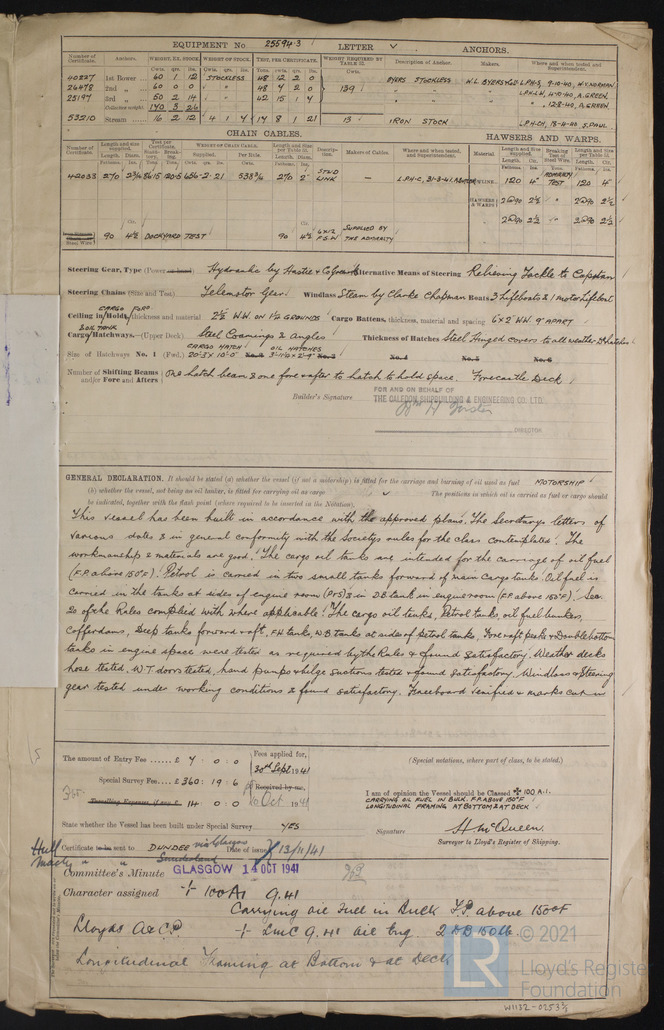 EQUIPMENT No 25594.3 LETTER ANCHORS.
Number of Certificate. Anchors. WEIGHT, EX. STOCK. WEIGHT OF STOCK. TEST, PER CERTIFICATE. WEIGHT REQUIRED BY TABLE 11. Description of Anchor. Makers. Where and when tested and Superintendent.
Cwts. qrs. lbs. Cwts. qrs. lbs. Tons. cwts. qrs. lbs. Cwts.
40227 1st Bower 60 1 12 STOCKLESS 48 12 2 0 BYERS STOCKLESS W.L. BYERS & Co L.P.H-S, 9-10-40, W. NORMAN.
26478 2nd " 60 0 0 " 48 7 2 0 139 " " L.P.H-L.W, 4-10-40, A. GREEN,
25197 3rd " 50 2 14 " 42 15 1 7 " " " 12-8-40, A. GREEN,
Collective weight. 170 3 26
53210 Stream 16 2 12 4 1 4 14 8 1 21 13 IRON STOCK L.P.H-CH, 13-11-40 S. PAUL.
CHAIN CABLES. HAWSERS AND WARPS.
Number of Certificate. Length and size supplied. Test per Certificate. WEIGHT OF CHAIN CABLE. Length and Size per Table 11. Description. Makers of Cables. Where and when tested, and Superintendent. Material Length and Size supplied. Breaking Test of Steel Wire. Length and Size per Table 11.
Length. Diam. Supplied. Per Rule. Length. Diam.
42033 270 2 3/16 86·15 120·5 656·2·21 538 3/4 270 2" STUD LINK — L.P.H-C, 31-3-41, TOWLINE 120 4" ADMIRALTY TEST 120 4"
HAWSERS & WARPS 2@90 2½ " 2@90 2½
2@90 2½ " 2@90 2½
Steel Wire 90 4½ DOCKYARD TEST 90 4½ 6X12 F.S.W SUPPLIED BY THE ADMIRALTY
Steering Gear, Type (Power or hand) Hydraulic by Hastie & Co Greenock Alternative Means of Steering Relieving Tackle to Capstan
Steering Chains (Size and Test) Telemotor Gear Windlass Steam by Clarke Chapman Boats 3 Lifeboats & 1 Motor Lifeboat
Ceiling in CARGO FWD Holds, thickness and material 2½ W.W. ON 1½ GROUNDS Cargo Battens, thickness, material and spacing 6x2" WW. 9" APART
Cargo & OIL TANK Hatchways.—(Upper Deck) Steel Coamings & Angles Thickness of Hatches Steel Hinged covers to all weather Dk hatches
CARGO HATCH OIL HATCHES
Size of Hatchways No. 1 (Fwd.) 20'-3" x 10'-0" No. 2 3'-11½" x 2'-9" No. 3 No. 4 No. 5 No. 6
Number of Shifting Beams and/or Fore and Afters One hatch beam & one fore & after to hatch to hold space. Forecastle Deck
Builder's Signature
FOR AND ON BEHALF OF
THE CALEDON SHIPBUILDING & ENGINEERING CO. LTD.
DIRECTOR
GENERAL DECLARATION. It should be stated (a) whether the vessel (if not a motorship) is fitted for the carriage and burning of oil used as fuel MOTORSHIP
(b) whether the vessel, not being an oil tanker, is fitted for carrying oil as cargo The positions in which oil is carried as fuel or cargo should
be indicated, together with the flash point (where required to be inserted in the Notation).
This vessel has been built in accordance with the approved plans. The Secretarys letters of
various dates & in general conformity with the Societys rules for the class contemplated. The
workmanship & materials are good. The cargo oil tanks are intended for the carriage of oil fuel
(F.P. above 150°F). Petrol is carried in two small tanks forward of main cargo tanks. Oil fuel is
carried in the tanks at sides of engine room (P&S) & in DB tank in engine room (F.P. above 150°F). Sec.
20 of the Rules complied with where applicable. The cargo oil tanks, Petrol tanks, oil fuel bunkers,
cofferdams, Deep tanks forward & aft, F.W. tanks, W.B tanks at sides of Petrol tanks, Fore & aft peaks & Double bottom
tanks in engine space were tested as required by the Rules & found satisfactory. Weather decks
hose tested, W.T. doors tested, hand pumps & bilge suctions tested & found satisfactory, Windlass & Steering
gear tested under working conditions & found satisfactory. Freeboard verified & marks cut in
The amount of Entry Fee ...... £ 7 : 0 : 0 Fees applied for,
30th Sept 1941
Special Survey Fee .... £ 360 : 19 : 6 Received by me,
Travelling Expenses, if any £ 14 : 0 : 0 Oct 1941
(Special notations, where part of class, to be stated.)
I am of opinion the Vessel should be Classed ✠ 100 A.1.
CARRYING OIL FUEL IN BULK. F.P. ABOVE 150°F
LONGITUDINAL FRAMING AT BOTTOM & AT DECK
State whether the Vessel has been built under Special Survey YES
Signature H. McQueen.
Surveyor to Lloyd's Register of Shipping.
Hull Certificate to be sent to DUNDEE via Glasgow Date of issue 13/11/41
Machy " " Sunderland
Committee's Minute GLASGOW 14 OCT 1941
Character assigned + 100A1 9.41
Carrying oil Fuel in Bulk F.P. above 150°F
Lloyds A & C.P. + LMC 9.41 Oil Eng. 2 DB 150 lb.
Longitudinal Framing at Bottom & at Deck
© 2021
LR
Lloyd's Register
Foundation
W1132-0253½